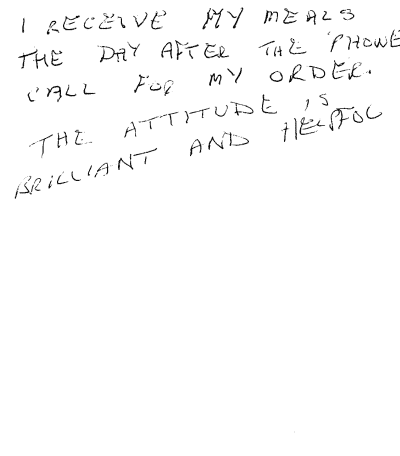 I RECEIVE MY MEALS
THE DAY AFTER THE 'PHONE
CALL FOR MY ORDER.
THE ATTITUDE IS
BRILLIANT AND HELPFUL